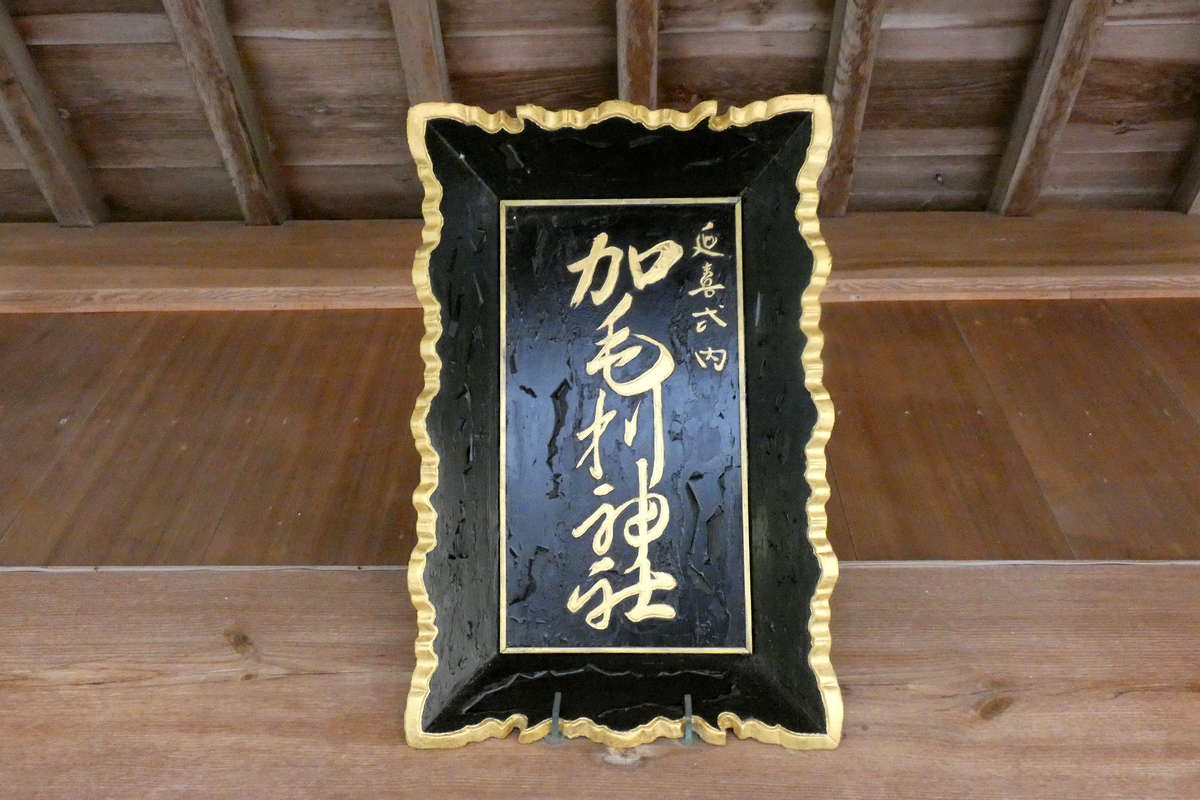 延喜式内
加毛利神社